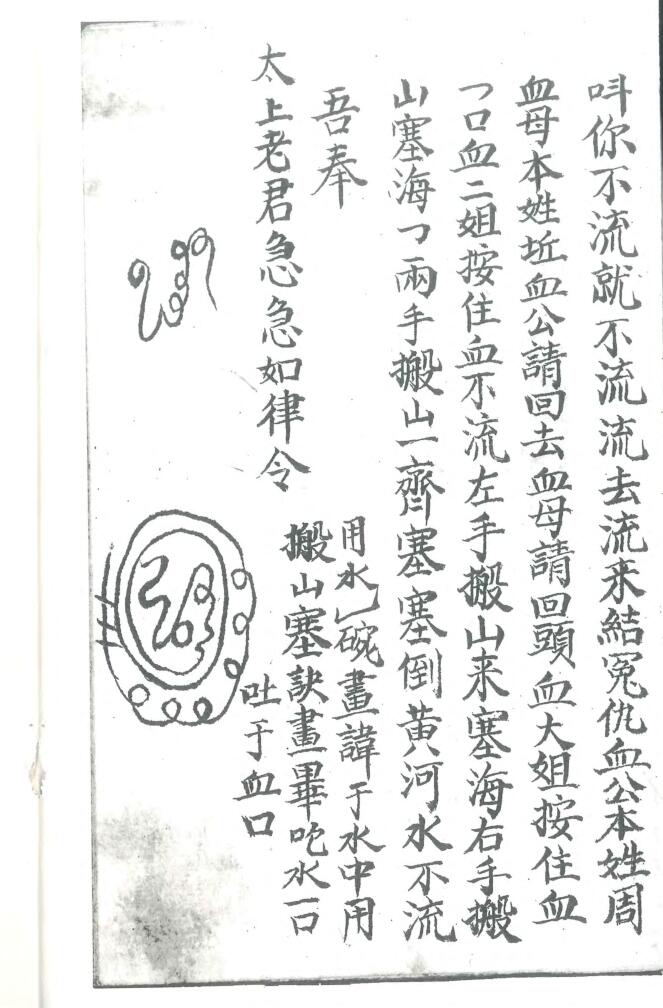 呌你不流就不流流去流来結冤仇血公本姓周
血母本姓坵血公請回去血母請回頭血大姐按住血
乛口血二姐按住血不流左手搬山来塞海右手搬
山塞海乛兩手搬山一齊塞塞倒黄河水不流
吾奉
太上老君急急如律令
用水乚碗畫諱于水中用
搬山塞訣畫畢吃水一口
吐于血口